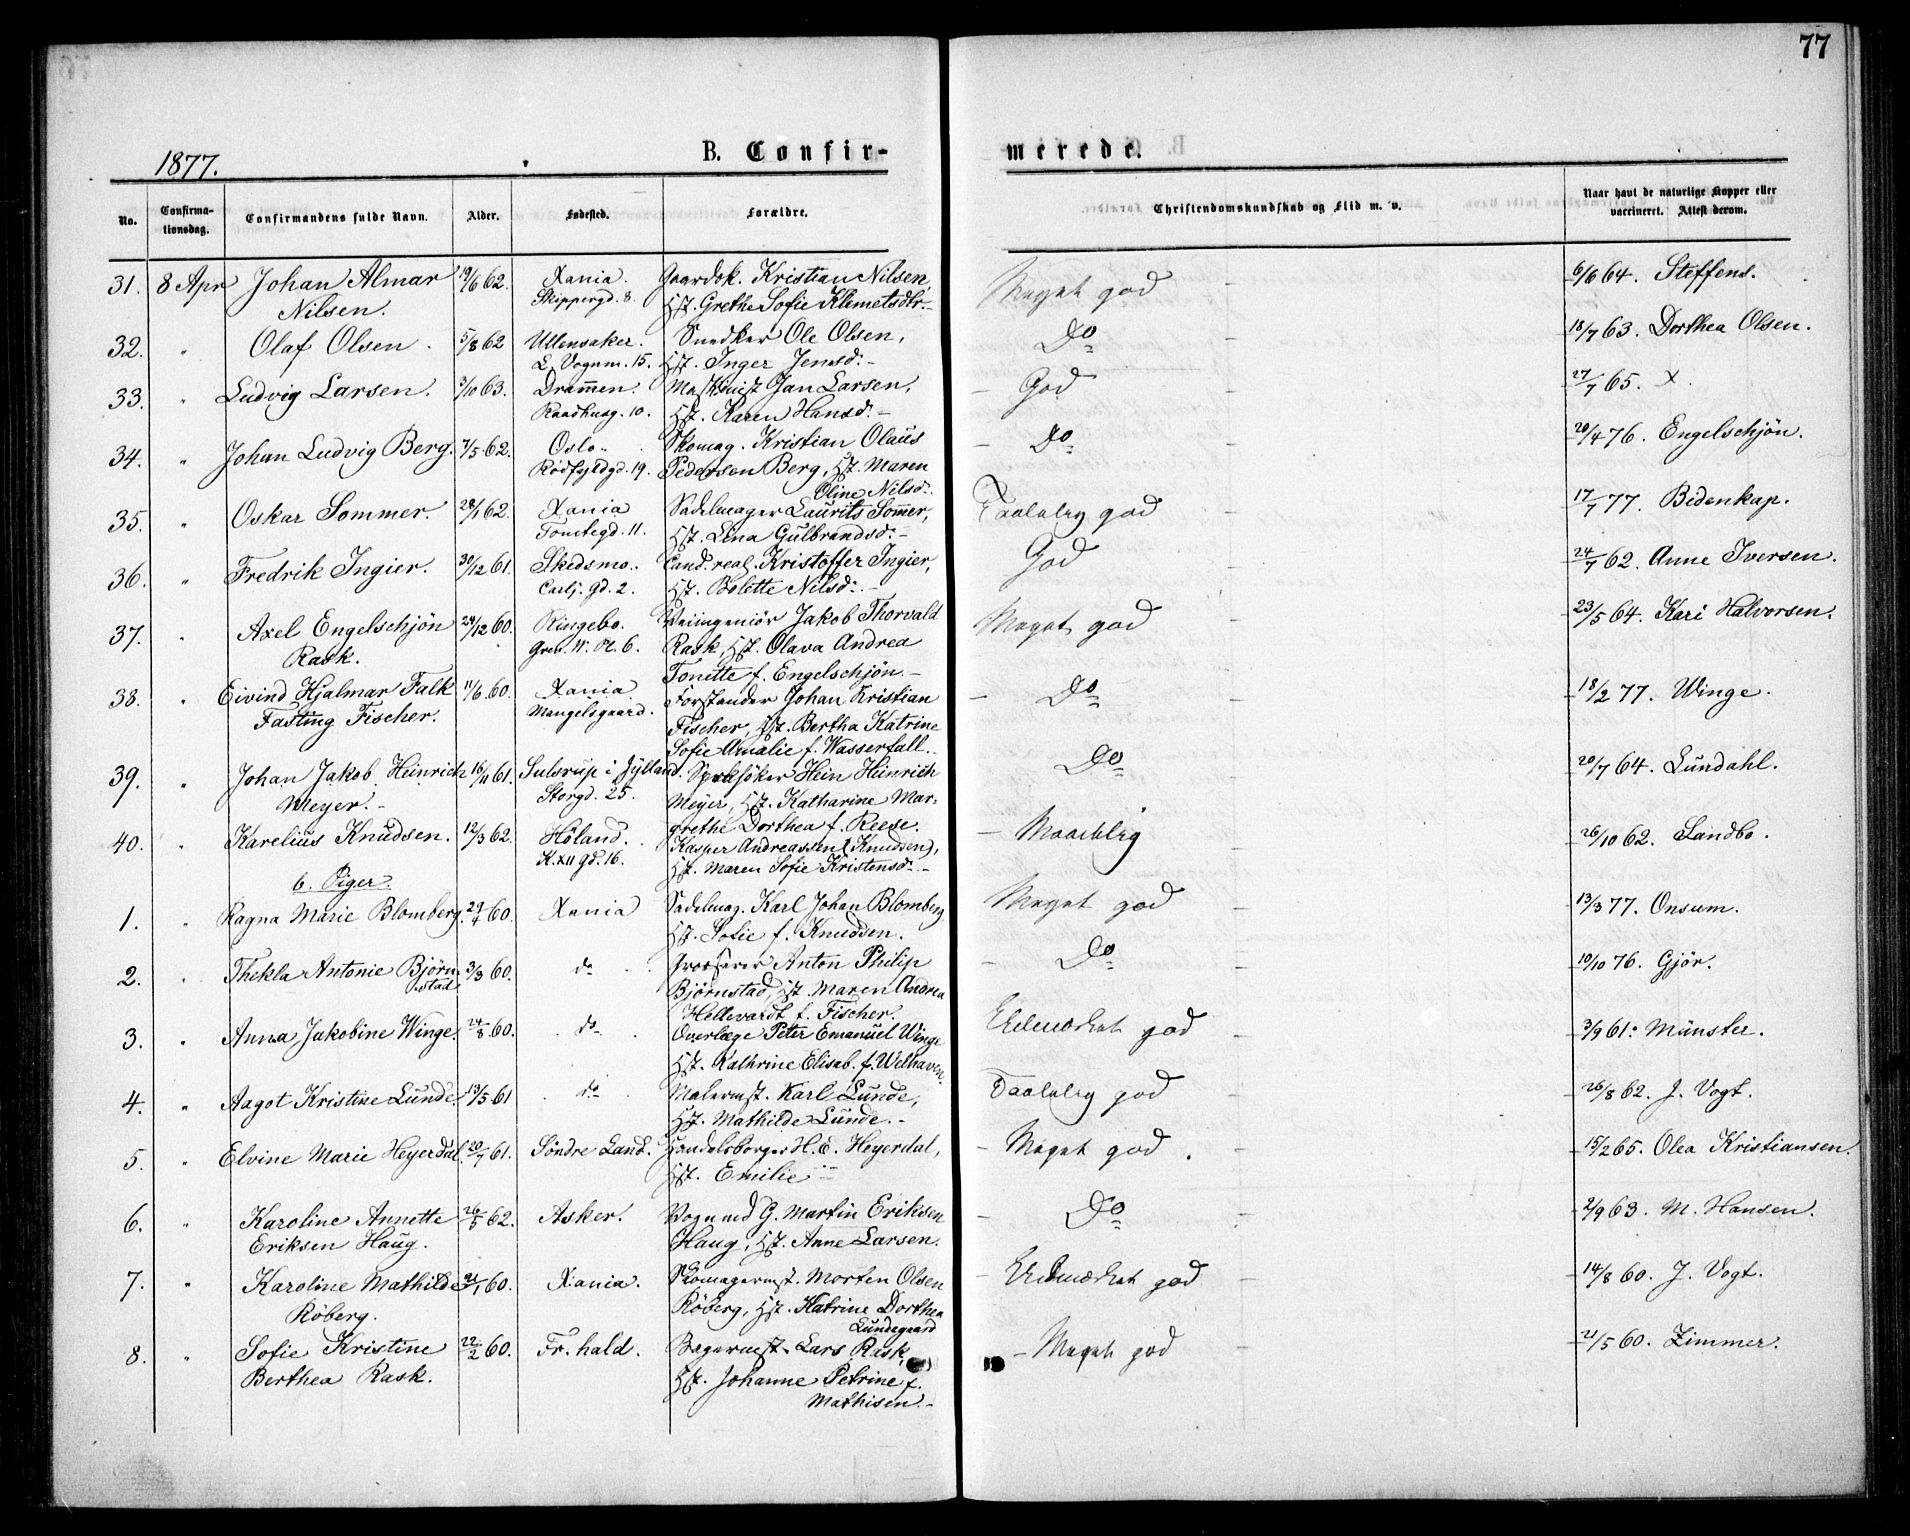 77
1877. B. Confirmerede.
No. Confirmationsdag. Confirmandens fulde Navn. Alder. Fødested. Forældre. Christendomskundskab og Flid m. v. Naar havt de naturlige Kopper eller vaccineret. Attest derom.
31. 8 Apr Johan Almar 19/6 62. Xania. Gaardsk. Kristian Nilsen, Meget god 6/6 64. Steffens.
Nilsen. Skippergd. 8. Hst. Grethe Sofie Klemetsdtr.-
32. " Olaf Olsen. 5/8 62 Ullensaker. Snedker Ole Olsen, Do 18/7 63. Dorthea Olsen.
L. Vognm. 15. Hst. Inger Jensd.-
33. " Ludvig Larsen. 3/10 63. Drammen. Maskinist Jan Larsen, - God 27/7 65. X.
Raadhusg. 10. Hst. Karen Hansd.-
34. " Johan Ludvig Berg. 7/5 62. Oslo. Skomag. Kristian Olaus - Do 20/4 76. Engelschjön.
Rödfyldgd. 19. Pedersen Berg, Hst. Maren
Oline Nilsd.
35. " Oskar Sommer. 28/1 62. Xania Sadelmager Laurits Sommer, Taalelig god 17/7 77. Bidenkap.
Tomtegd. 11. Hst. Lina Gulbrandsd.-
36. " Fredrik Ingier. 30/12 61. Skedsmo. Cand. real. Kristoffer Ingier, God 24/7 62. Anne Iversen.
Carlj. Gd. 2. Hst. Bolette Nilsd.-
37. " Axel Engelschjön 24/12 60. Ringebo. Veiingeniör Jakob Thorvald Meget god 23/5 64. Kari Halvorsen.
Rask. Grev. W. Pl. 6. Rask, Hst. Olava Andrea
Tonette f. Engelschjön.-
38. " Eivind Hjalmar Falk 11/6 60. Xania Forstander Johan Kristian - Do 18/2 77. Winge.
Fasting Fischer. Mangelsgaard. Fischer, Hst. Bertha Katrine
Sofie Amalie f. Wasserfall.
39. " Johan Jakob Heinrich 16/11 61. Sulsrup i Jylland. Hein Heinrich Do 20/7 64. Lundahl.
Meyer.- Storgd. 25. Meyer, Hst. Katharine Mar-
grethe Dorthea f. Reese.
40. " Karelius Knudsen. 12/3 62. Höland. Kasper Andreassen (Knudsen), - Maadelig 26/10 62. Sandbo.
K. XII gd. 16. Hst. Maren Sofie Kristensd.-
b. Piger.
1. " Ragna Marie Blomberg. 29/4 60. Xania Sadelmag. Karl Johan Blomberg Meget god 13/3 77. Onsum.
Hst. Sofie f. Knudsen.
2. " Thekla Antonie Björn- 3/3 60. do Grosserer Anton Philip - Do 10/10 76. Gjör.
stad Björnstad, Hst. Maren Andrea
Hellevardt f. Fischer.
3. " Anna Jakobine Winge. 24/8 60. do Overlæge Peter Emanuel Winge Udmærket god 3/9 61. Münster.
Hst. Kathrine Elisab. f. Welhaven.
4. " Aagot Kristine Lunde. 13/5 61 do Malermst. Karl Lunde, Taalelig god 26/8 62. J. Vogt.
Hst. Mathilde Lunde.-
5. " Elvine Marie Heyerdal. 20/7 61. Söndre Land. Handelsborger H. E. Heyerdal, - Meget god. 15/2 65. Olea Kristiansen.
Hst. Emilie
6. " Karoline Annette 26/5 62. Asker. Vognmd G. Martin Eriksen - Do 2/9 63. M. Hansen.
Eriksen Haug. Haug, Hst. Anne Larsen.
7. " Karoline Mathilde 21/1 60. Xania. Skomagermst. Morten Olsen - Udmærket god 14/8 60. J. Vogt.
Röberg. Röberg, Hst. Katrine Dorthea
Lundegaard
8. " Sofie Kristine 22/2 60. Fr.hald. Bagermst. Lars Rask, - Meget god 21/5 60. Zimmer.
Berthea Rask. Hst. Johanne Petrine f.
Mathisen.-